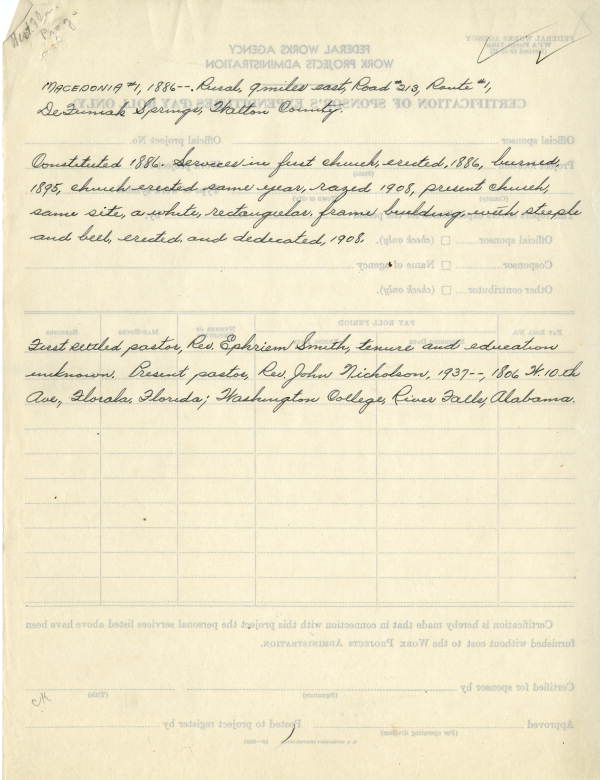 MACEDONIA #1, 1886--. Rural, 9 miles east, Road #213, Route #1,
De Funiak Springs, Walton County.
Constituted 1886. Services in first church, erected, 1886, burned,
1895, church erected same year, razed 1908, present church,
same site, a white, rectangular, frame building, with steeple
and bell, erected and dedicated, 1908.
First settled pastor, Rev. Ephriem Smith, tenure and education
unknown. Present pastor, Rev. John Nicholson, 1937--, 1806 W. 10th
Ave, Florala, Florida; Washington College, River Falls, Alabama.
FEDERAL WORKS AGENCY
WORK PROJECTS ADMINISTRATION
CERTIFICATION OF SPONSOR'S EXPENDITURES (PAY ROLL ONLY)
Official sponsor
Official project No.
Official sponsor (check only).
Cosponsor Name of agency
Other contributor (check only).
PAY ROLL PERIOD
Certification is hereby made that in connection with this project the personal services listed above have been
furnished without cost to the WORK PROJECTS ADMINISTRATION.
Certified for sponsor by
(Signature) (Title)
Approved Posted to project register by
(For operating division)